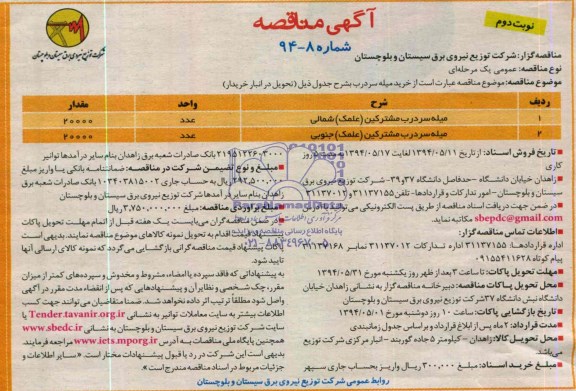 آگهی مناقصه
نوبت دوم
شماره ۸-۹۴
شرکت توزیع نیروی برق سیستان و بلوچستان
مناقصه گزار: شرکت توزیع نیروی برق سیستان و بلوچستان
نوع مناقصه: عمومی یک مرحله‌ای
موضوع مناقصه: موضوع مناقصه عبارت است از خرید میله سردرب بشرح جدول ذیل (تحویل در انبار خریدار)
ردیف شرح واحد مقدار
۱ میله سردرب مشترکین (علمک) شمالی عدد ۲۰۰۰۰
۲ میله سردرب مشترکین (علمک) جنوبی عدد ۲۰۰۰۰
تاریخ فروش اسناد: از تاریخ ۱۳۹۴/۰۵/۱۱ لغایت ۱۳۹۴/۰۵/۱۷ به مدت روز
کاری
زاهدان خیابان دانشگاه - حدفاصل دانشگاه ۳۷ و ۳۹ - شرکت توزیع نیروی برق
سیستان و بلوچستان - امور تدارکات و قراردادها - تلفن ۳۱۱۳۷۱۵۵
در ضمن جهت دریافت اسناد مناقصه از طریق پست الکترونیکی
sbepdc@gmail.com مکاتبه نماید.
اطلاعات تماس مناقصه گزار:
اداره قراردادها: ۳۱۱۳۷۱۵۵ اداره تدارکات ۳۱۱۳۷۰۱۲ نمابر ۳۱۱۳۷۱۶۸
پیام کوتاه ۰۹۱۵۵۴۱۱۶۲۸
مهلت تحویل پاکات: تا ساعت ۳ بعد از ظهر روز یکشنبه مورخ ۱۳۹۴/۰۵/۳۱
محل تحویل پاکات مناقصه: دبیرخانه مناقصه گزار به نشانی زاهدان خیابان
دانشگاه نبش دانشگاه ۳۷ شرکت توزیع نیروی برق سیستان و بلوچستان
تاریخ بازگشایی پاکات: ساعت ۱۰ روز دوشنبه مورخ
مدت قرارداد: ۲ ماه پس از ابلاغ قرارداد و بر اساس جدول زمانبندی
محل تحویل کالا: زاهدان - کیلومتر ۵ جاده گوربند - انبار مرکزی شرکت توزیع
می‌باشد.
مبلغ خرید اسناد: ۳۰۰,۰۰۰ ریال واریز بحساب جاری سپهر
بانک صادرات شعبه برق زاهدان بنام سایر درآمدها توانیر
مبلغ و نوع تضمین شرکت در مناقصه: ضمانتنامه بانکی یا واریز مبلغ
ریال به حساب جاری ۱۰۳۴۰۳۸۱۵۰۰۲ بانک صادرات شعبه برق
زاهدان بنام سایر درآمدها شرکت توزیع برق سیستان و بلوچستان
مبلغ برآوردی مناقصه: مبلغ ریال
در ضمن مناقصه گران می‌بایست یک هفته قبل از اتمام مهلت تحویل پاکات
اقدام به تحویل نمونه کالاهای موضوع مناقصه نمایند. بدیهی است
پاکات پیشنهاد قیمت مناقصه گرانی بازگشایی می‌گردد که نمونه کالای ارسالی آنها
تایید شود.
به پیشنهاداتی که فاقد سپرده یا امضاء، مشروط و مخدوش و سپرده‌های کمتر از میزان
مقرر، چک شخصی و نظایر آن و پیشنهادهایی که پس از انقضاء مدت مقرر در آگهی
واصل شود مطلقاً ترتیب اثر داده نخواهد شد. ضمنا متقاضیان می‌توانند جهت کسب
اطلاعات بیشتر به سایت معاملات توانیر به نشانی Tender.tavanir.org.ir یا
سایت شرکت توزیع نیروی برق سیستان و بلوچستان به نشانی www.sbedc.ir و
همچنین پایگاه ملی مناقصات به آدرس www.iets.mporg.ir مراجعه فرمایند.
بدیهی است این شرکت در رد یا قبول پیشنهادات مختار است. «سایر اطلاعات و
جزئیات مربوط در اسناد مناقصه مندرج است»
روابط عمومی شرکت توزیع نیروی برق سیستان و بلوچستان
پایگاه اطلاع رسانی مناقصه و مزایده
۰۲۱-۸۸۳۴۹۶۷۰-۵